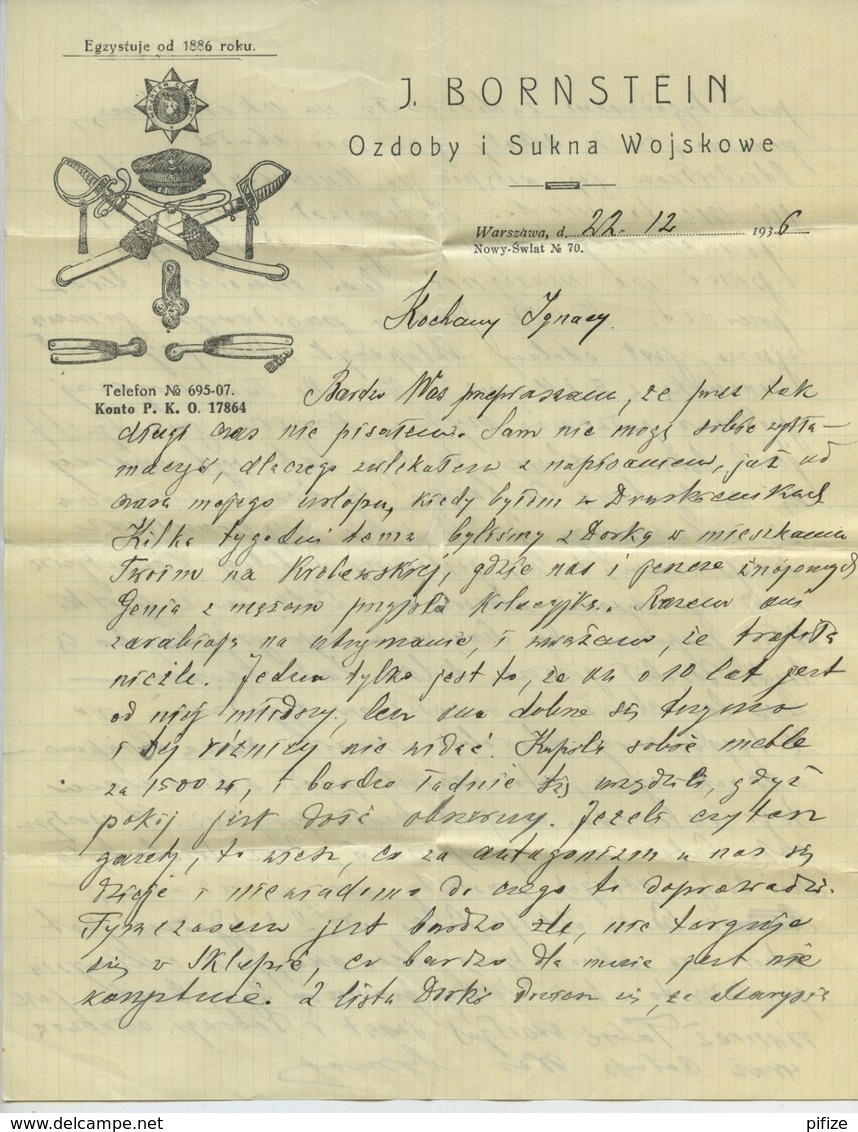 Egzystuje od 1886 roku.
J. BORNSTEIN
Ozdoby i Sukna Wojskowe
Warszawa, d. 22-12 1936
Nowy-Świat № 70.
Kochany Ignacy.
Telefon № 695-07.
Konto P. K. O. 17864
Bardzo Was przepraszam, że przez tak
długi czas nie pisałem. Sam nie mogę sobie wytła-
maczyć, dlaczego zwlekałem z napisaniem, już od
czasu mojego urlopu, kiedy byłem w Druskienikach
Kilka tygodni temu byliśmy z Dorką w mieszkaniu
Twoim na Królewskiej, gdzie nas i jeszcze znajomych
Genia z mężem przyjęła kolacyjką. Razem oni
zarabiają na utrzymanie, i uważam, że trafiła
nieźle. Jedna tylko jest to, że on o 10 lat jest
od niej młodszy, lecz ona dobrze się trzyma
i tej różnicy nie widać. Kupili sobie meble
za 1500 zł, i bardzo ładnie się urządzili, gdyż
pokój jest dość obszerny. Jeżeli czytasz
gazety, to wiesz, co za antagonizm u nas się
dzieje i niewiadomo do czego to doprowadzi.
Tymczasem jest bardzo źle, nie targuje
się w sklepie, co bardzo dla mnie jest nie
Z listu Dorki się, że Marysia
pifize